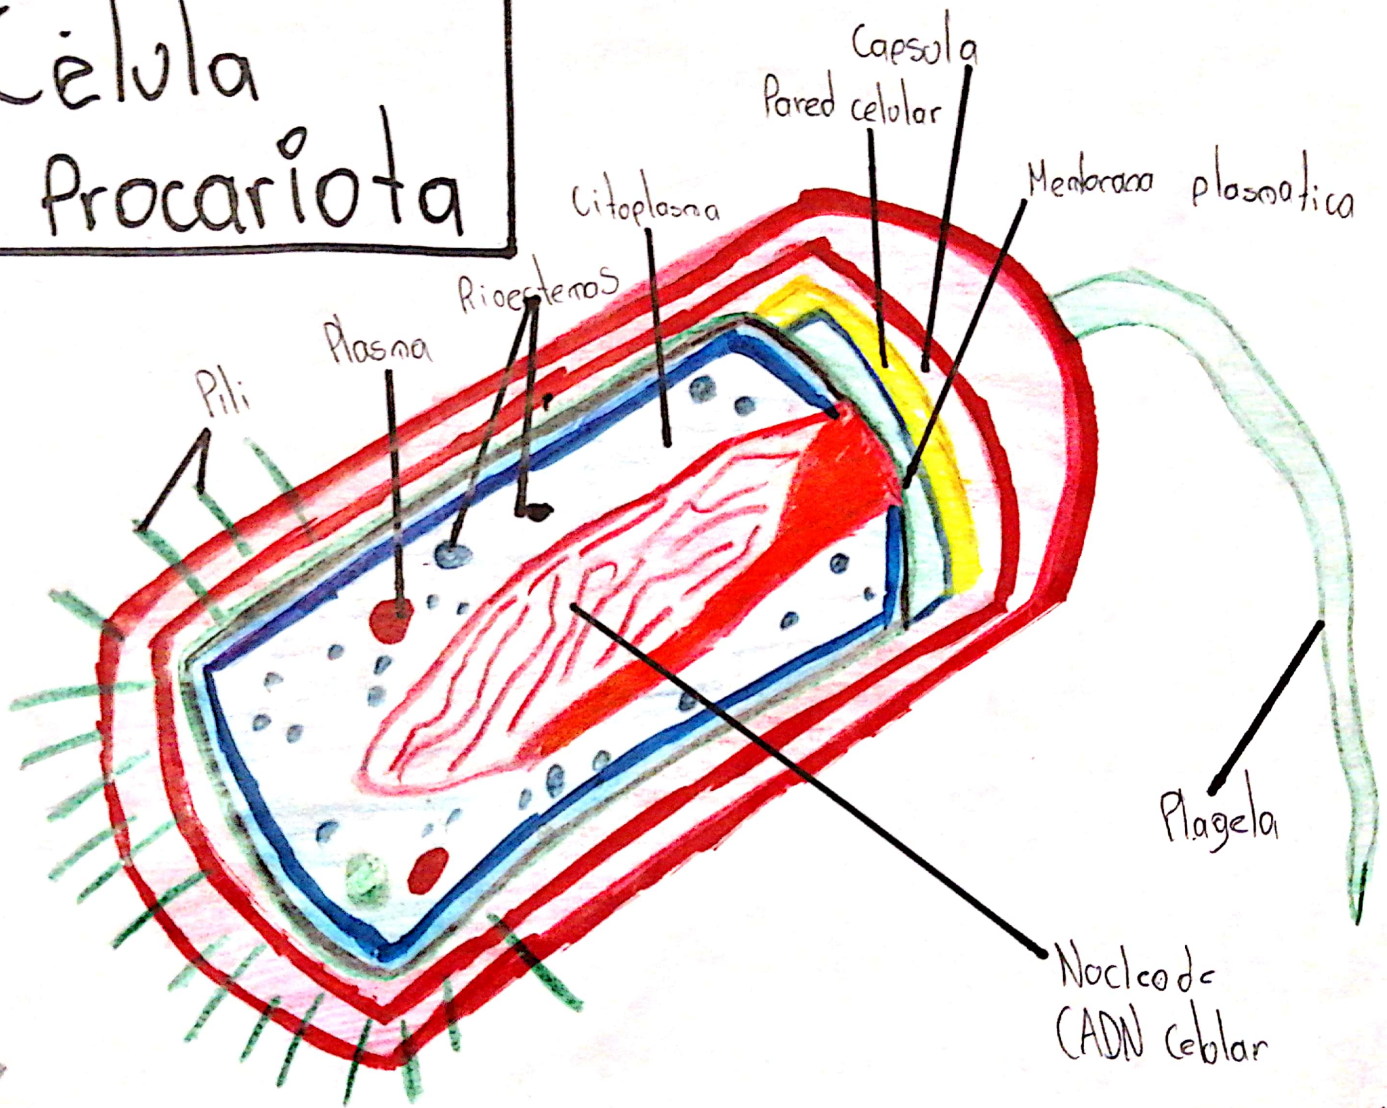 Célula
Procariota
Capsula
Pared celular
Menbrana plasmatica
Citoplasma
Rioestemos
Plasma
Pili
Plagela
Nocleode
CADN Ceblar